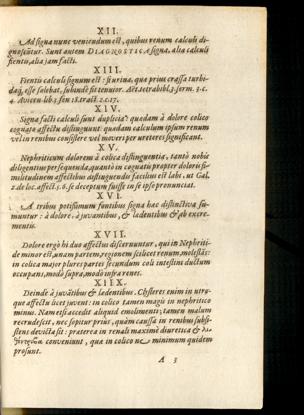 XII.
Ad signa nunc veniendum est, quibus renum calculi di-
gnoscũtur. Sunt autem DIAGNOSTICA signa, alia calculi
fientis, alia jam facti.
XIII.
Fientis calculi signum est: si urina, quæ prius crassa turbi-
daq́; esse solebat, subinde fit tenuior. Aet. tetrabibl. 3. serm. 3. c.
4. Avicen. lib. 3. fen 18. tract. 2. c. 17.
XIV.
Signa facti calculi sunt duplicia: quædam à dolore colico
cognato affectu distinguunt: quædam calculum ipsum renum
vel in renibus consistere vel moveri per ureteres significant.
XV.
Nephriticum dolorem à colico distinguentia, tantò nobis
diligentius persequenda, quantò in cognatis propter doloris si-
militudinem affectibus distinguendis facilius est labi. ut Gal.
2. de loc. affect. 5. 6. se deceptum fuisse in se ipso pronunciat.
XVI.
A tribus potissimum fontibus signa hæc distinctiva su-
muntur: à dolore, à juvantibus, & lædentibus & ab excre-
mentis.
XVII.
Dolore ergò hi duo affectus discernuntur, qui in Nephriti-
de minor est, unam partem, regionem scilicet renum, molestãs:
in colica major plures partes secundum coli intestini ductum
occupans, modò supra, modò infra renes.
XIIX.
Deinde à juvãtibus & lædentibus. Clysteres enim in utro-
que affectu licet juvent: in colico tamen magis in nephritico
minus. Nam etsi accedit aliquid emolimenti; tamen malum
recrudescit, nec sopitur prius, quàm caussa in renibus subsi-
stens devicta sit: præterea in renali maximè diuretica &
conveniunt, quæ in colico ne minimum quidem
prosunt.
A 3